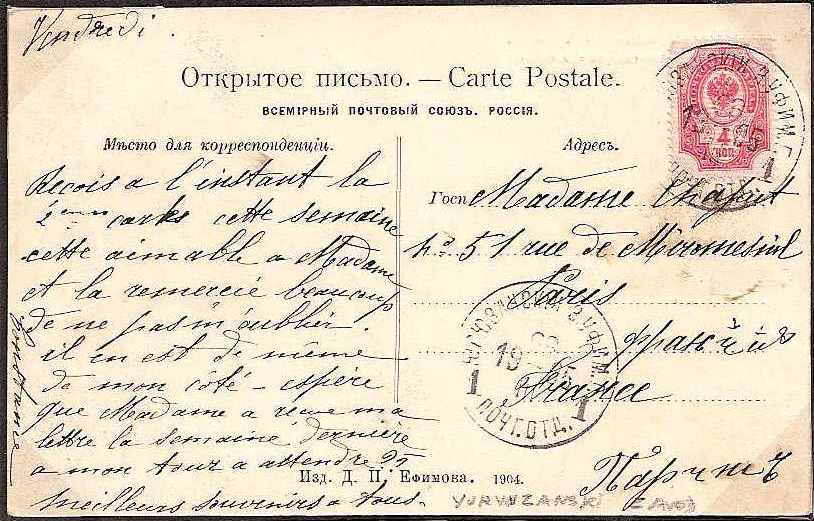 Vendredi.
Открытое письмо. — Carte Postale.
ВСЕМІРНЫЙ ПОЧТОВЫЙ СОЮЗЪ. РОССІЯ.
Мѣсто для корреспонденціи.
Адресъ.
Reçois a l'instant la
2eme carte cette semaine
cette aimable a Madame
et la remercie beaucoup
de ne pas m'oublier.
il en est de même
de mon côté - espère
que Madame a reçue ma
lettre la semaine dernière
a mon tour a attendre 25
meilleurs souvenirs a tous.
Constance
Госп Madame Chaput
No 51 rue de Miromesnil
Paris
France
Парижъ
4 КОП.
ЮРЮЗАНСКІЙ З. УФИМ. Г.
ПОЧТ. ОТД.
1
ЮРЮЗАНСКІЙ З. УФИМ. Г.
19
1 1
ПОЧТ. ОТД.
Изд. Д. П. Ефимова. 1904.
YURYUZANSKI ZAVOD